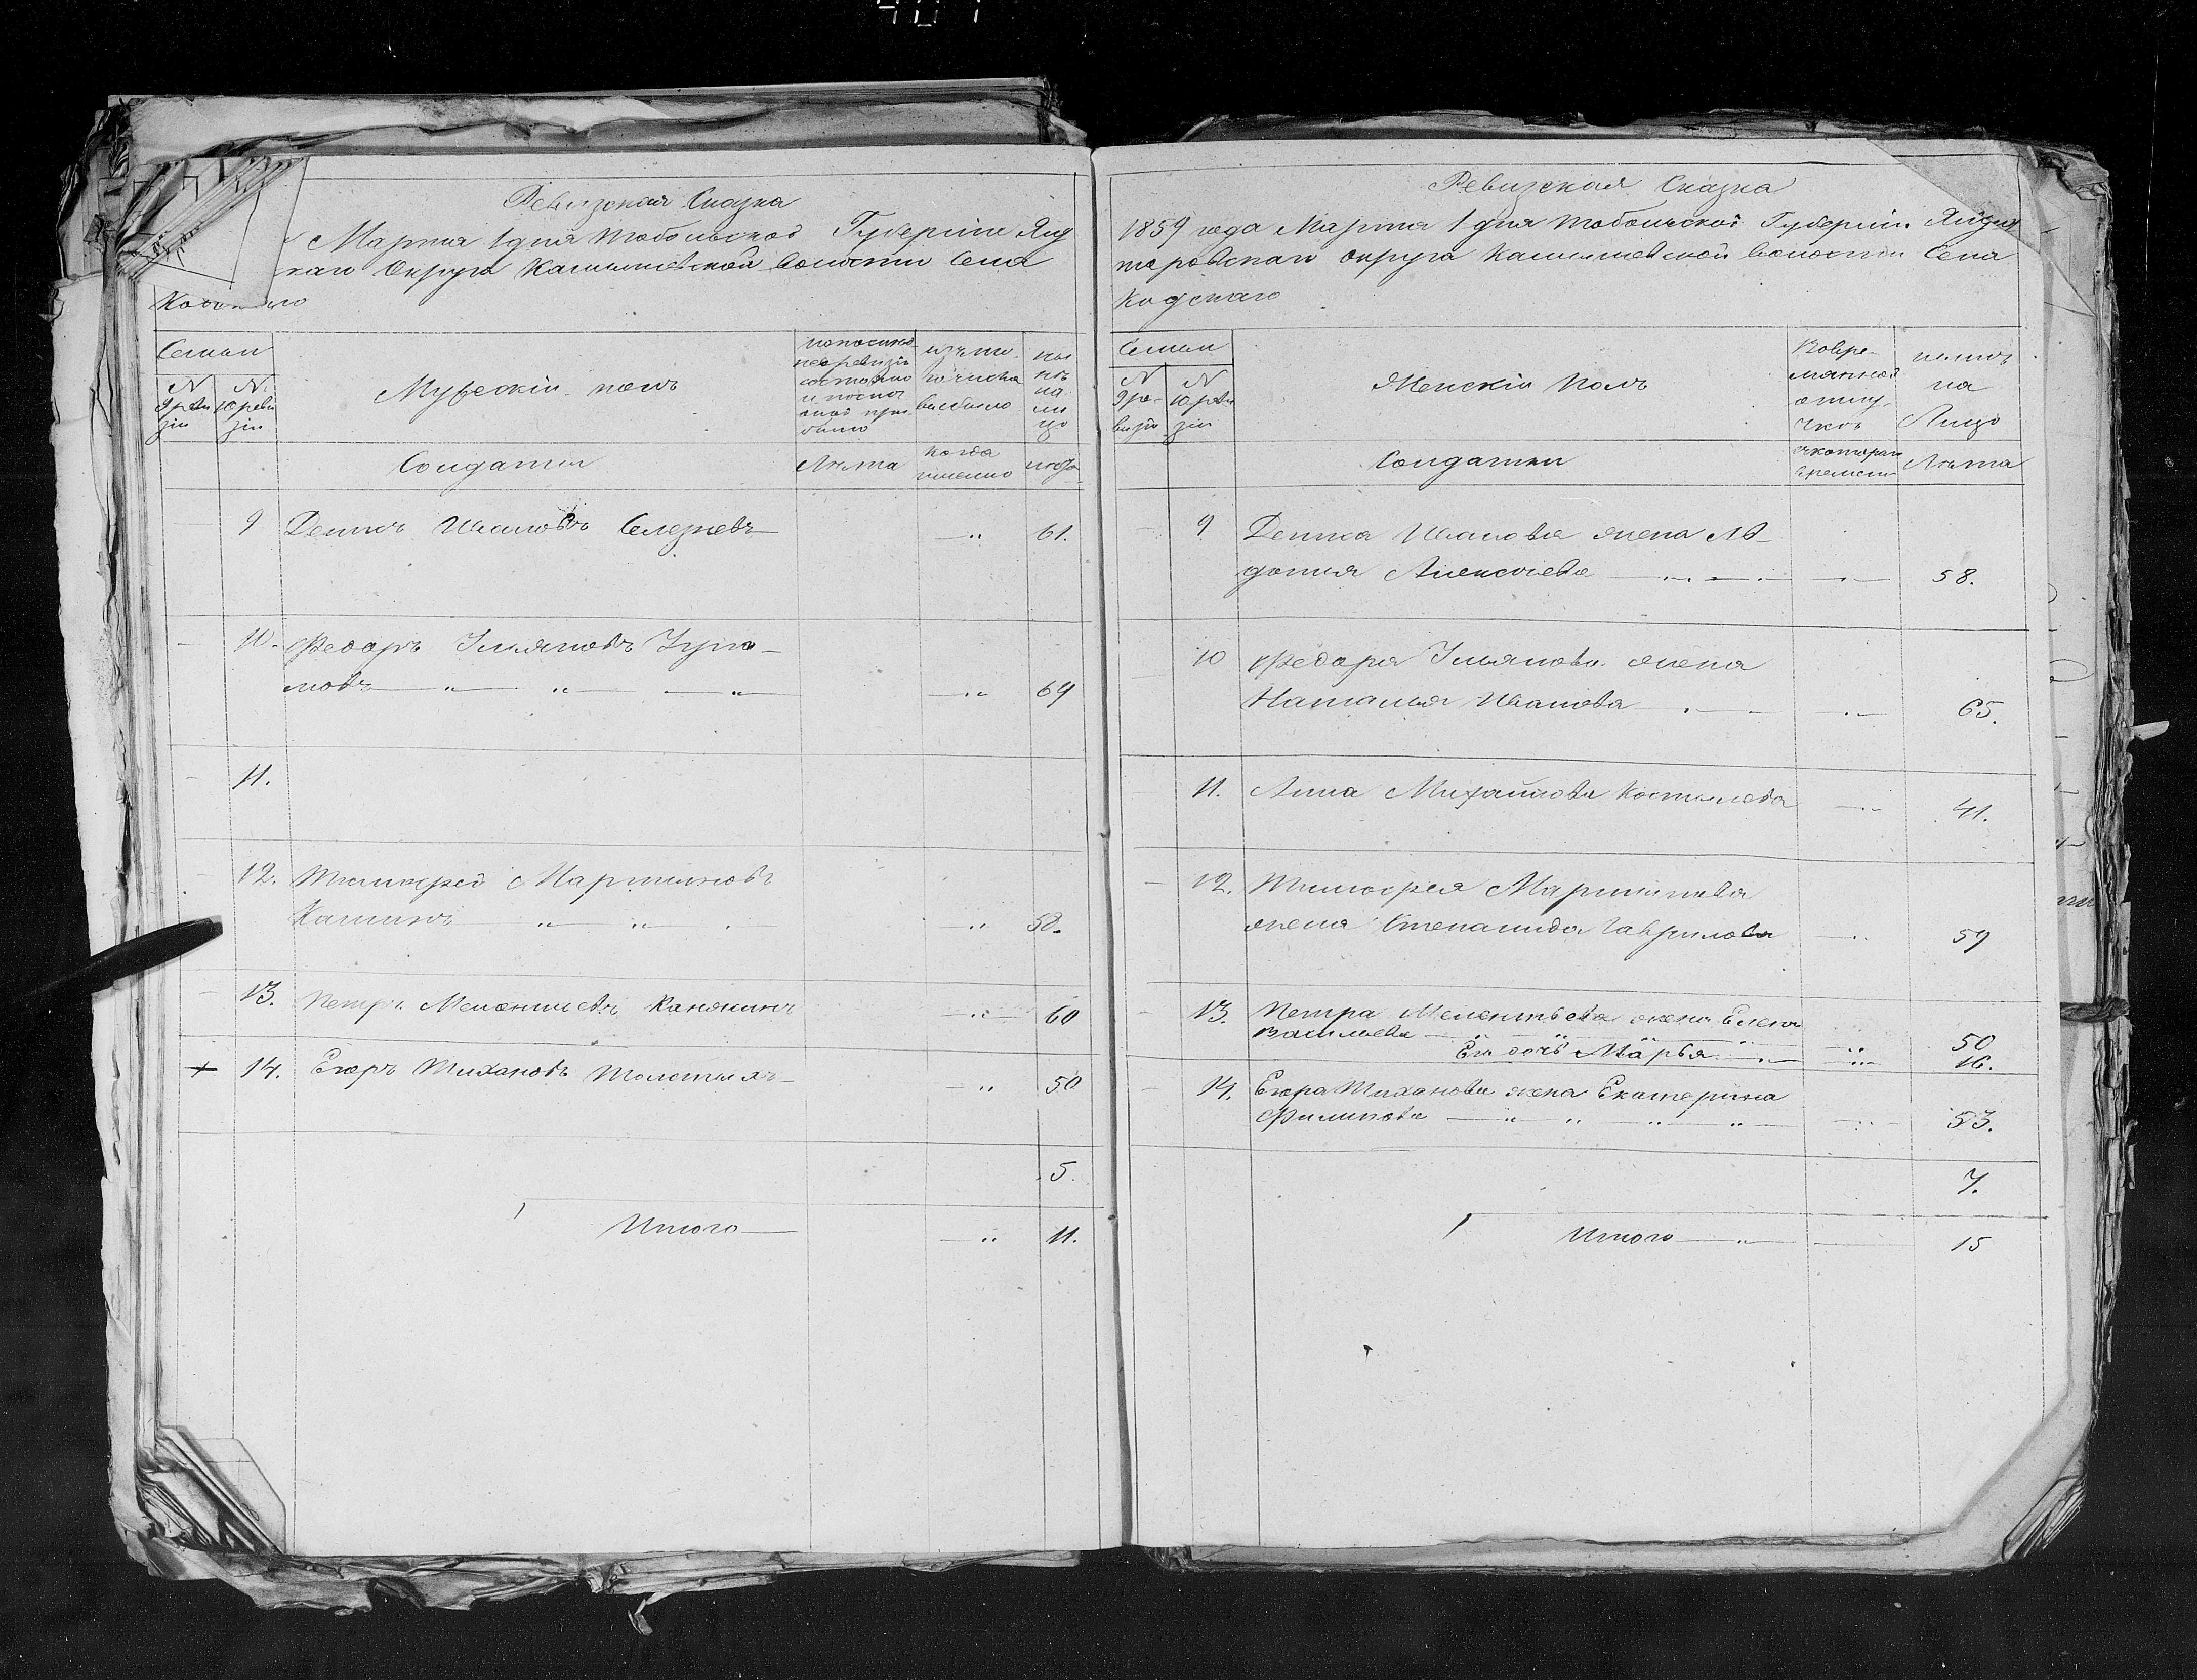 Ревизская Сказка
Марта 1 дня Тобольской Губернiи Ялу
скаго Округа Камышевской Волости Села
Кодскаго
Семьи
N 9 ревизiи
N 10 ревизiи
Мужескiй полъ
по последней ревизiи состояло и после оной прибыло
изъ того числа выбыло
ны не на ли цо
Солдаты
Лѣта
когда именно
лѣта
9 Денисъ Ивановъ Селезневъ — „ 61.
10. Федоръ Ульяновъ
мовъ — „ — „ — „ — „ 64
11.
12. Тимофей Мартиновъ
Кашинъ — „ — „ „ 58.
13. Петръ Мелентьевъ Канакинъ — „ 60
+ 14. Егоръ Тихановъ Толстыхъ — „ 50
5.
Итого — „ 11.
Ревизская Сказка
1859 года Марта 1 дня Тобольской Губернiи Ялу
торовскаго Округа Камышевской волости Села
Кодскаго
Семьи
N 9 ревизiи
N 10 ревизiи
Женскiй Полъ
Во временной отлучкѣ
на Лицо
Солдатки
съ котораго времени
Лѣта
9 Дениса Иванова жена Ав-
дотья Алексѣева — „ — „ — 58.
10 Федора Ульянова жена
Наталья Иванова — „ — 65.
11. Анна Михайлова Костылева — „ 41.
12. Тимофея Мартинова
жена Степанида Гаврилова — „ 59
13. Петра Мелентьева жена Елена
Васильева — „ — „ — 50
Ея дочь Марья — „ — 16.
14. Егора Тиханова жена Екатерина
Филипова — „ — „ — „ — „ — 53.
7.
Итого — „ — 15